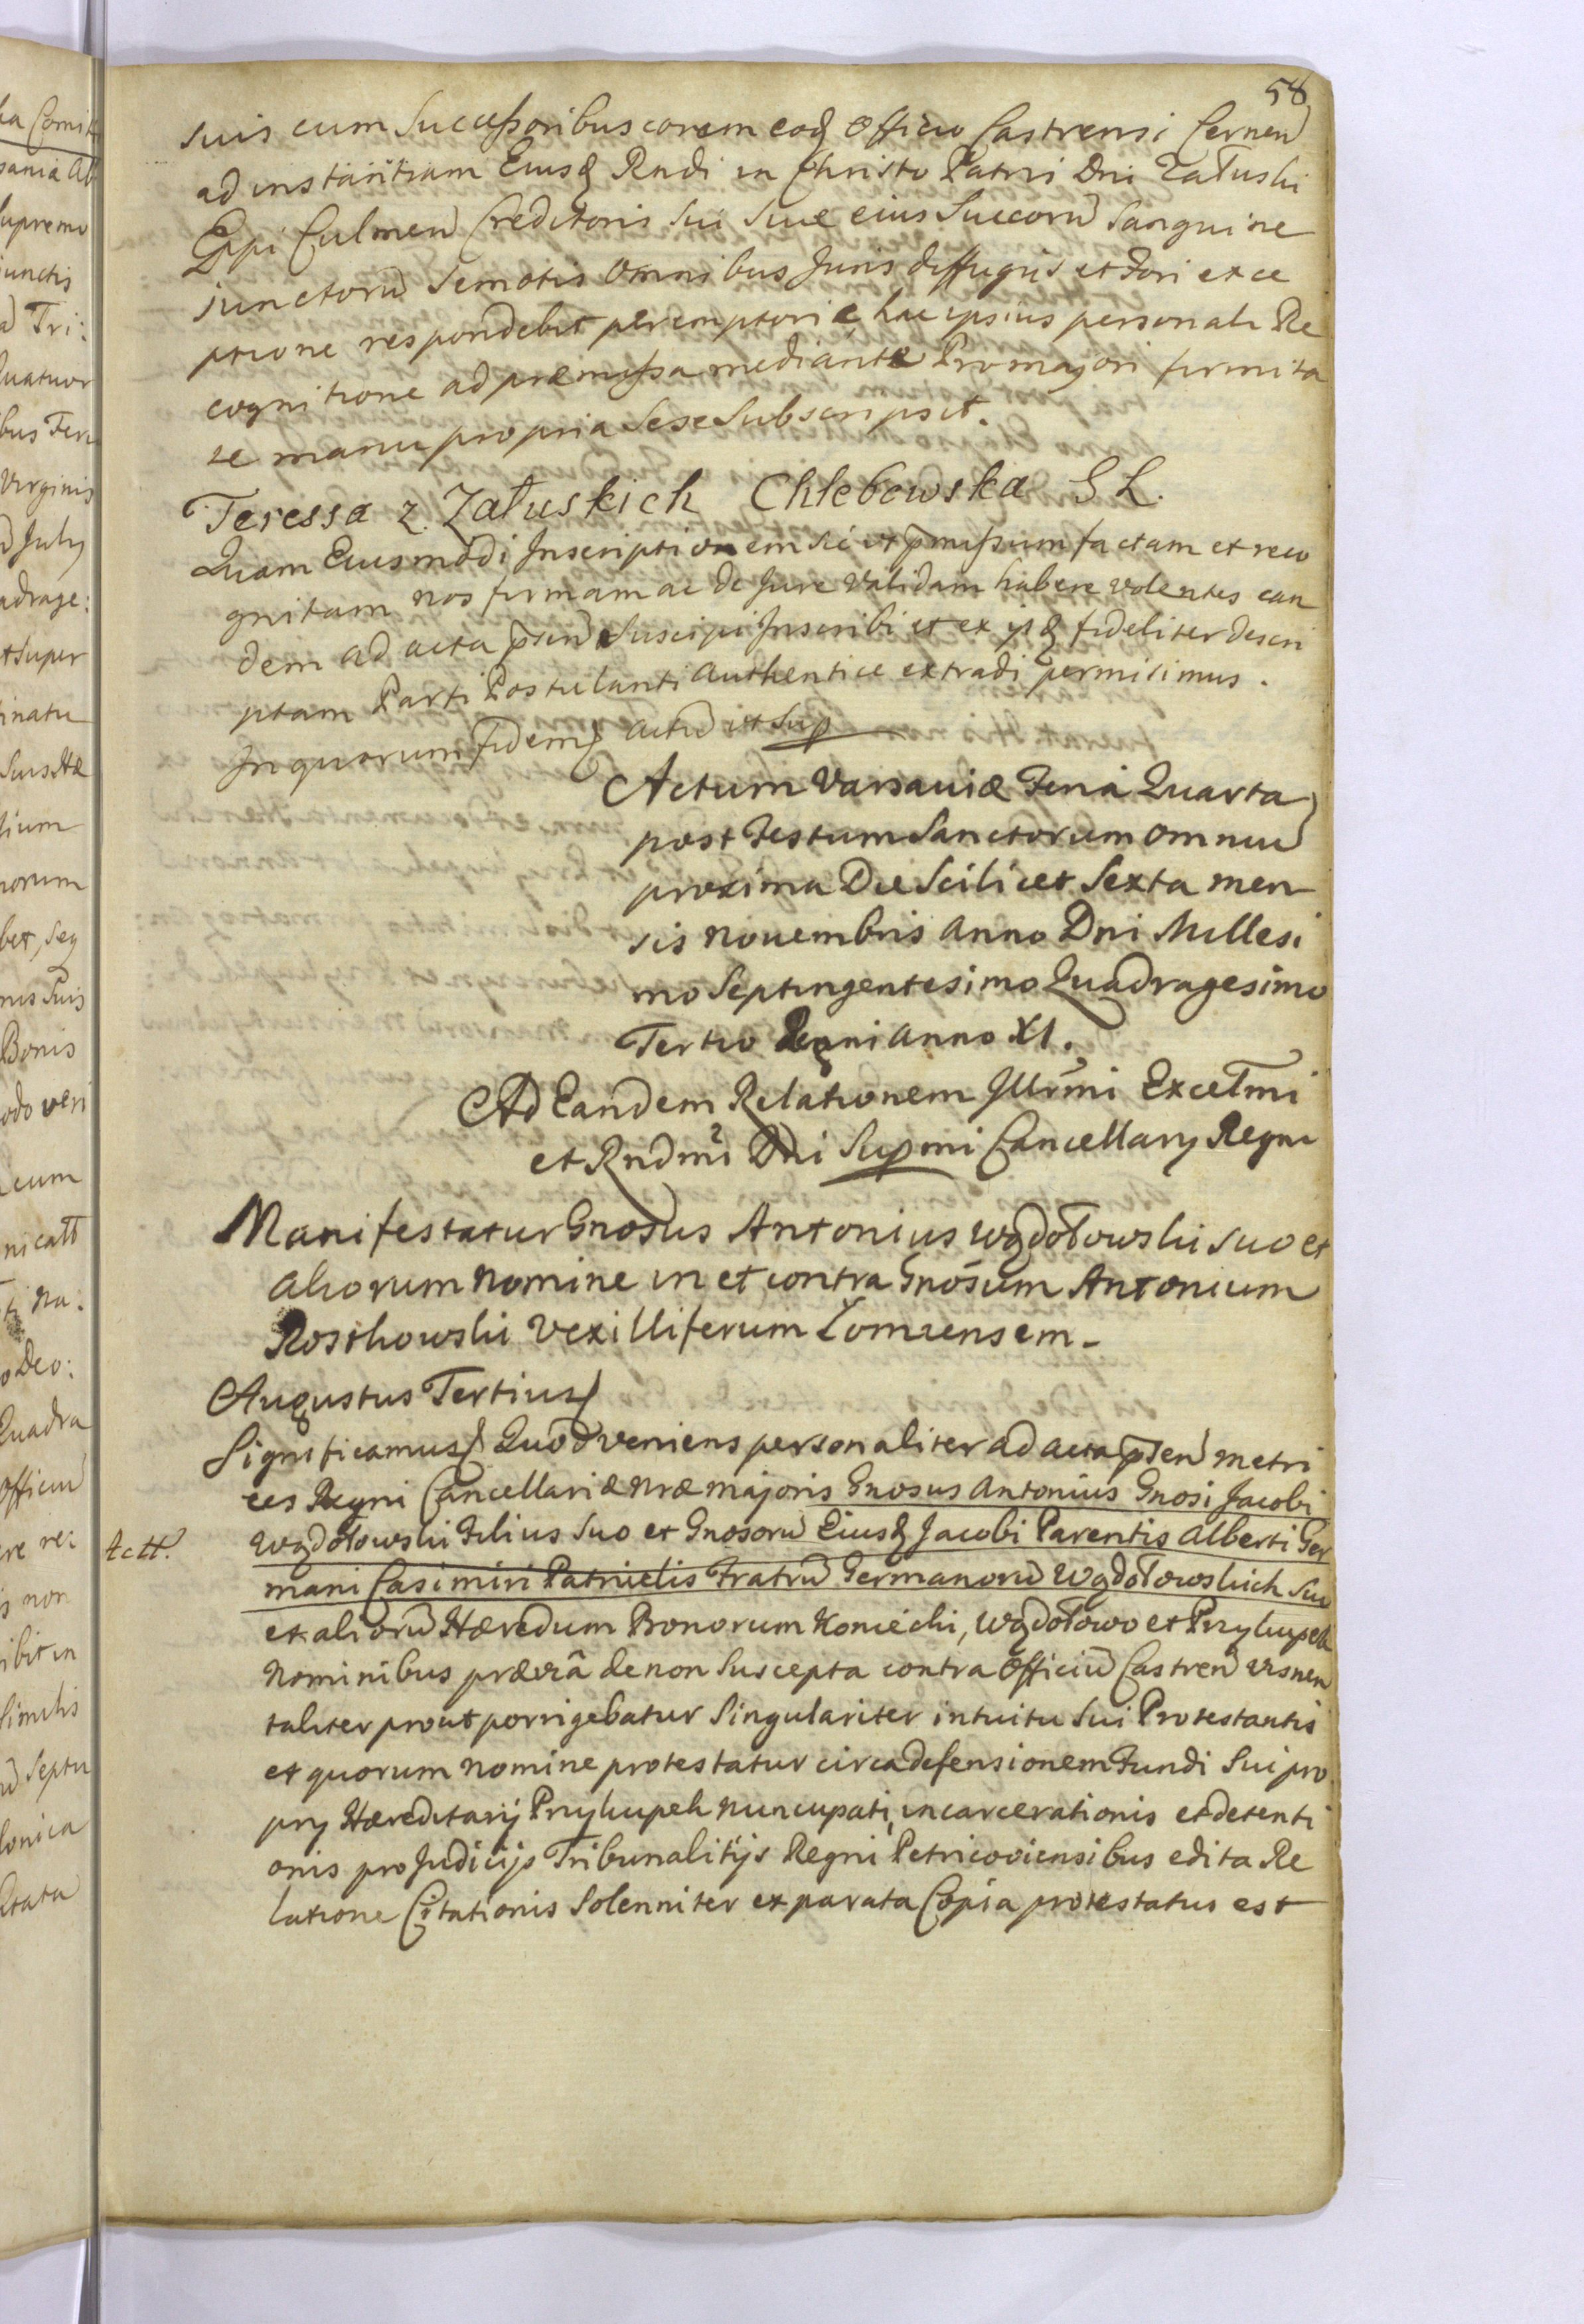 58
suis cum Successoribus coram eoq Officio Castrensi Cernen
ad instantiam Eiusq Rndi in Christo Patris Dni Załuski
Eppi Culmen Creditoris sui siue eius Succorū Sanguine
junctorū Semotis Omnibus Juris diffugijs et Fori exce
ptione respondebit peremptorie, hac ipsius personali Re
cognitione ad præmissa mediante Pro majori firmita
te manu propria Sese Subscripsit.
Teressa z Załuskich Chlebowska S L.
Quam Eiusmodi Inscriptionem sic ut pmissum factam et reco
gnitam nos firmam ac de Jure Validam habere volentes ean
dem ad acta psen Suscipi Inscribi et ex ijsq fideliter descri
ptam Parti Postulanti Authentice extradi permisimus.
In quorum fidem Actū ut Sup
Actum Varsauiæ Feria Quarta
post Festum Sanctorum Omniū
proxima Die Scilicet Sexta men
sis Nouembris Anno Dni Millesi
mo Septingentesimo Quadragesimo
Tertio Regni Anno XI.
Ad Eandem Relationem Illrmi Excelmi
et Rndmi Dni Supmi Cancellarij Regni
Manifestatur Gnosus Antonius Wądołowski suo et
aliorum nomine in et contra Gnosum Antonium
Rostkowski Vexilliferum Łomzensem.
Augustus Tertius
Significamus Quod veniens personaliter ad acta psen Metri
ces Regni Cancellariæ Nræ Majoris Gnosus Antonius Gnosi Jacobi
Wądołowski Filius Suo et Gnosorū Eiusq Jacobi Parentis Alberti Ger
Actt.
mani Casimiri Patruelis Fratrū Germanorū Wądołowskich Suo
et aliorū Hæredum Bonorum Koniecki, Wądołowo et Przykupek
Nominibus præviâ de non Suscepta contra Officiū Castren Visnen
taliter prout porrigebatur Singulariter intuitu Sui Protestantis
et quorum nomine protestatur circa defensionem Fundi Sui pro
prij Hæreditarij Przykupek nuncupati, incarcerationis et detenti
onis pro Judicijs Tribunalitijs Regni Petricoviensibus edita Re
latione Citationis Solenniter ex parata Copia protestatus est